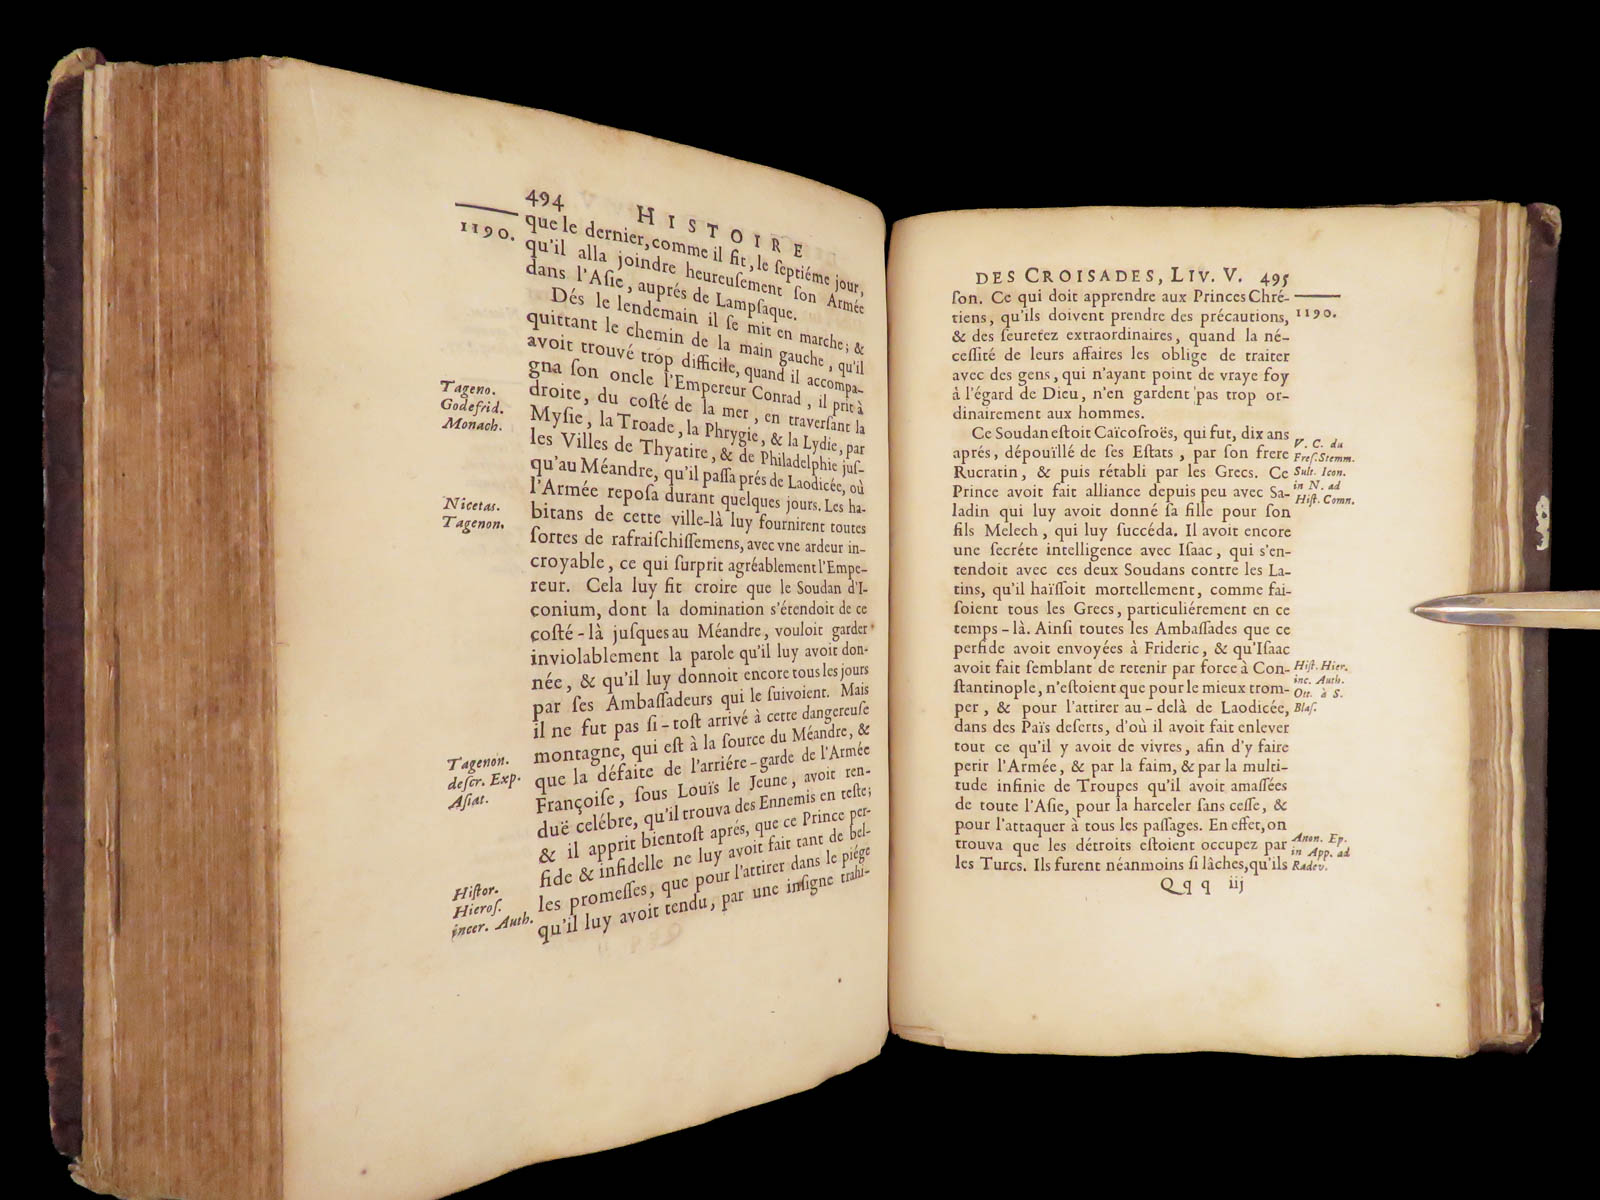 494
HISTOIRE
1190.
que le dernier, comme il fit, le ſeptiéme jour,
qu'il alla joindre heureuſement ſon Armée
dans l'Aſie, auprés de Lampſaque.
Dés le lendemain il ſe mit en marche; &
quittant le chemin de la main gauche, qu'il
avoit trouvé trop difficile, quand il accompa-
gna ſon oncle l'Empereur Conrad, il prit à
droite, du coſté de la mer, en traverſant la
Myſie, la Troade, la Phrygie, & la Lydie, par
les Villes de Thyatire, & de Philadelphie juſ-
qu'au Méandre, qu'il paſſa prés de Laodicée, où
l'Armée repoſa durant quelques jours. Les ha-
bitans de cette ville-là luy fournirent toutes
ſortes de rafraiſchiſſemens, avec vne ardeur in-
croyable, ce qui ſurprit agréablement l'Empe-
reur. Cela luy fit croire que le Soudan d'I-
conium, dont la domination s'étendoit de ce
coſté-là juſques au Méandre, vouloit garder
inviolablement la parole qu'il luy avoit don-
née, & qu'il luy donnoit encore tous les jours
par ſes Ambaſſadeurs qui le ſuivoient. Mais
il ne fut pas ſi-toſt arrivé à cette dangereuſe
montagne, qui eſt à la ſource du Méandre, &
que la défaite de l'arriére-garde de l'Armée
Françoiſe, ſous Louïs le Jeune, avoit ren-
duë celébre, qu'il trouva des Ennemis en teſte;
& il apprit bientoſt aprés, que ce Prince per-
fide & infidelle ne luy avoit fait tant de bel-
les promeſſes, que pour l'attirer dans le piége
qu'il luy avoit tendu, par une inſigne trahi-
Tageno.
Godefrid.
Monach.
Nicetas.
Tagenon.
Tagenon.
deſcr. Exp.
Aſiat.
Hiſtor.
Hieroſ.
incer. Auth.
DES CROISADES, LIV. V. 495
1190.
ſon. Ce qui doit apprendre aux Princes Chré-
tiens, qu'ils doivent prendre des précautions,
& des ſeuretez extraordinaires, quand la né-
ceſſité de leurs affaires les oblige de traiter
avec des gens, qui n'ayant point de vraye foy
à l'égard de Dieu, n'en gardent pas trop or-
dinairement aux hommes.
Ce Soudan eſtoit Caïcoſroës, qui fut, dix ans
aprés, dépouïllé de ſes Eſtats, par ſon frere
Rucratin, & puis rétabli par les Grecs. Ce
Prince avoit fait alliance depuis peu avec Sa-
ladin qui luy avoit donné ſa fille pour ſon
fils Melech, qui luy ſuccéda. Il avoit encore
une ſecréte intelligence avec Iſaac, qui s'en-
tendoit avec ces deux Soudans contre les La-
tins, qu'il haïſſoit mortellement, comme fai-
ſoient tous les Grecs, particuliérement en ce
temps-là. Ainſi toutes les Ambaſſades que ce
perfide avoit envoyées à Frideric, & qu'Iſaac
avoit fait ſemblant de retenir par force à Con-
ſtantinople, n'eſtoient que pour le mieux trom-
per, & pour l'attirer au-delà de Laodicée,
dans des Païs deſerts, d'où il avoit fait enlever
tout ce qu'il y avoit de vivres, afin d'y faire
perir l'Armée, & par la faim, & par la multi-
tude infinie de Troupes qu'il avoit amaſſées
de toute l'Aſie, pour la harceler ſans ceſſe, &
pour l'attaquer à tous les paſſages. En effet, on
trouva que les détroits eſtoient occupez par
les Turcs. Ils furent néanmoins ſi lâches, qu'ils
Qqq iij
V. C. du
Freſ. Stemm.
Sult. Icon.
in N. ad
Hiſt. Comn.
Hiſt. Hier.
inc. Auth.
Ott. à S.
Blaſ.
Anon. Ep.
in App. ad
Radev.